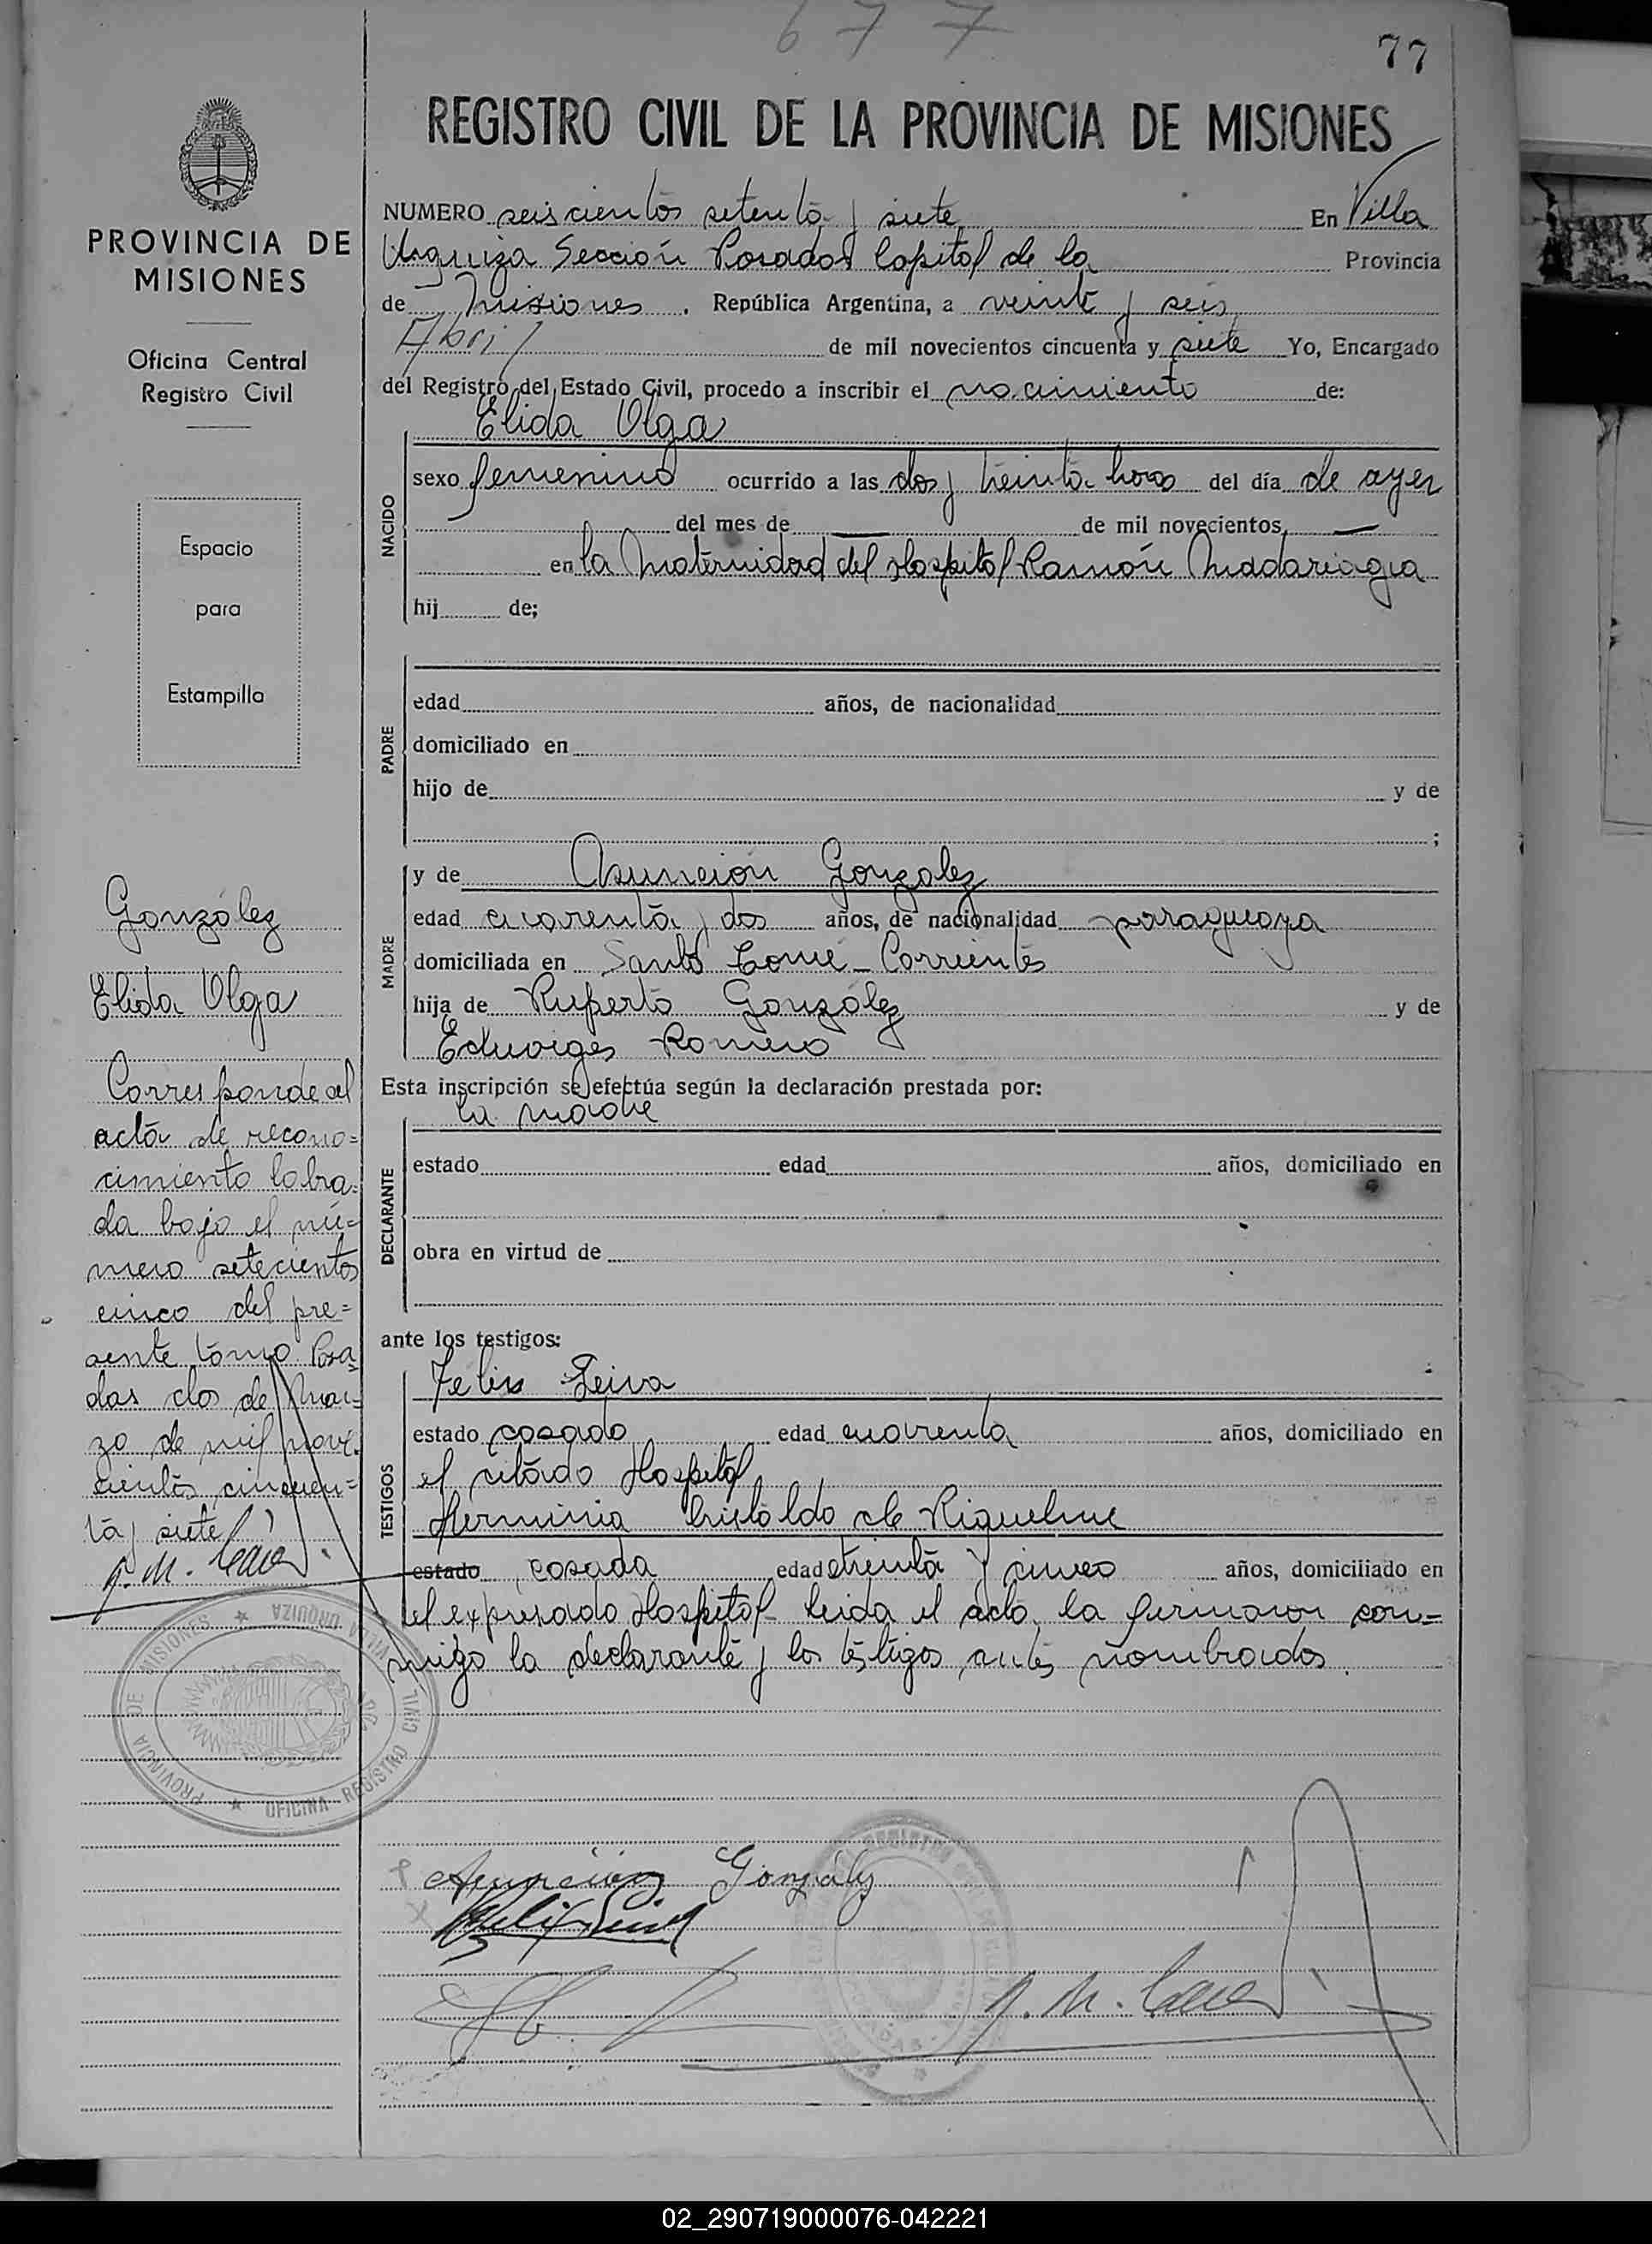 677
77
REGISTRO CIVIL DE LA PROVINCIA DE MISIONES
PROVINCIA DE
MISIONES
Oficina Central
Registro Civil
Espacio
para
Estampilla
NUMERO seiscientos setenta y siete En Villa
Urquiza Sección Posadas Capital de la Provincia
de Misiones. República Argentina, a veinte y seis
Abril de mil novecientos cincuenta y siete Yo, Encargado
del Registro del Estado Civil, procedo a inscribir el nacimiento de:
Elida Olga
NACIDO
sexo femenino ocurrido a las dos y treinta horas del día de ayer
del mes de — de mil novecientos, —
en la Maternidad del Hospital Ramón Madariaga
hij de;
PADRE
edad años, de nacionalidad
domiciliado en
hijo de y de
;
MADRE
y de Asunción González
edad cuarenta y dos años, de nacionalidad paraguaya
domiciliada en Santo Tomé - Corrientes
hija de Ruperto González y de
Eduviges Romero
Esta inscripción se efectúa según la declaración prestada por:
la madre
DECLARANTE
estado edad años, domiciliado en
obra en virtud de
ante los testigos:
TESTIGOS
Felix Leiva
estado casado edad cuarenta años, domiciliado en
el citado Hospital
Herminia Cristaldo de Riquelme
estado casada edad treinta y cinco años, domiciliado en
el expresado Hospital leida el acta, la firmaron con=
migo la declarante y los testigos antes nombrados.
González
Elida Olga
Corresponde al
acta de recono=
cimiento labra=
da bajo el nú=
mero setecientos
cinco del pre=
sente tomo Posa=
das dos de Mar=
zo de mil nove=
cientos cincuen=
ta y siete
PROVINCIA DE MISIONES ★ VILLA URQUIZA
OFICINA REGISTRO CIVIL ★
Asunción González
Felix Leiva
02_290719000076-042221